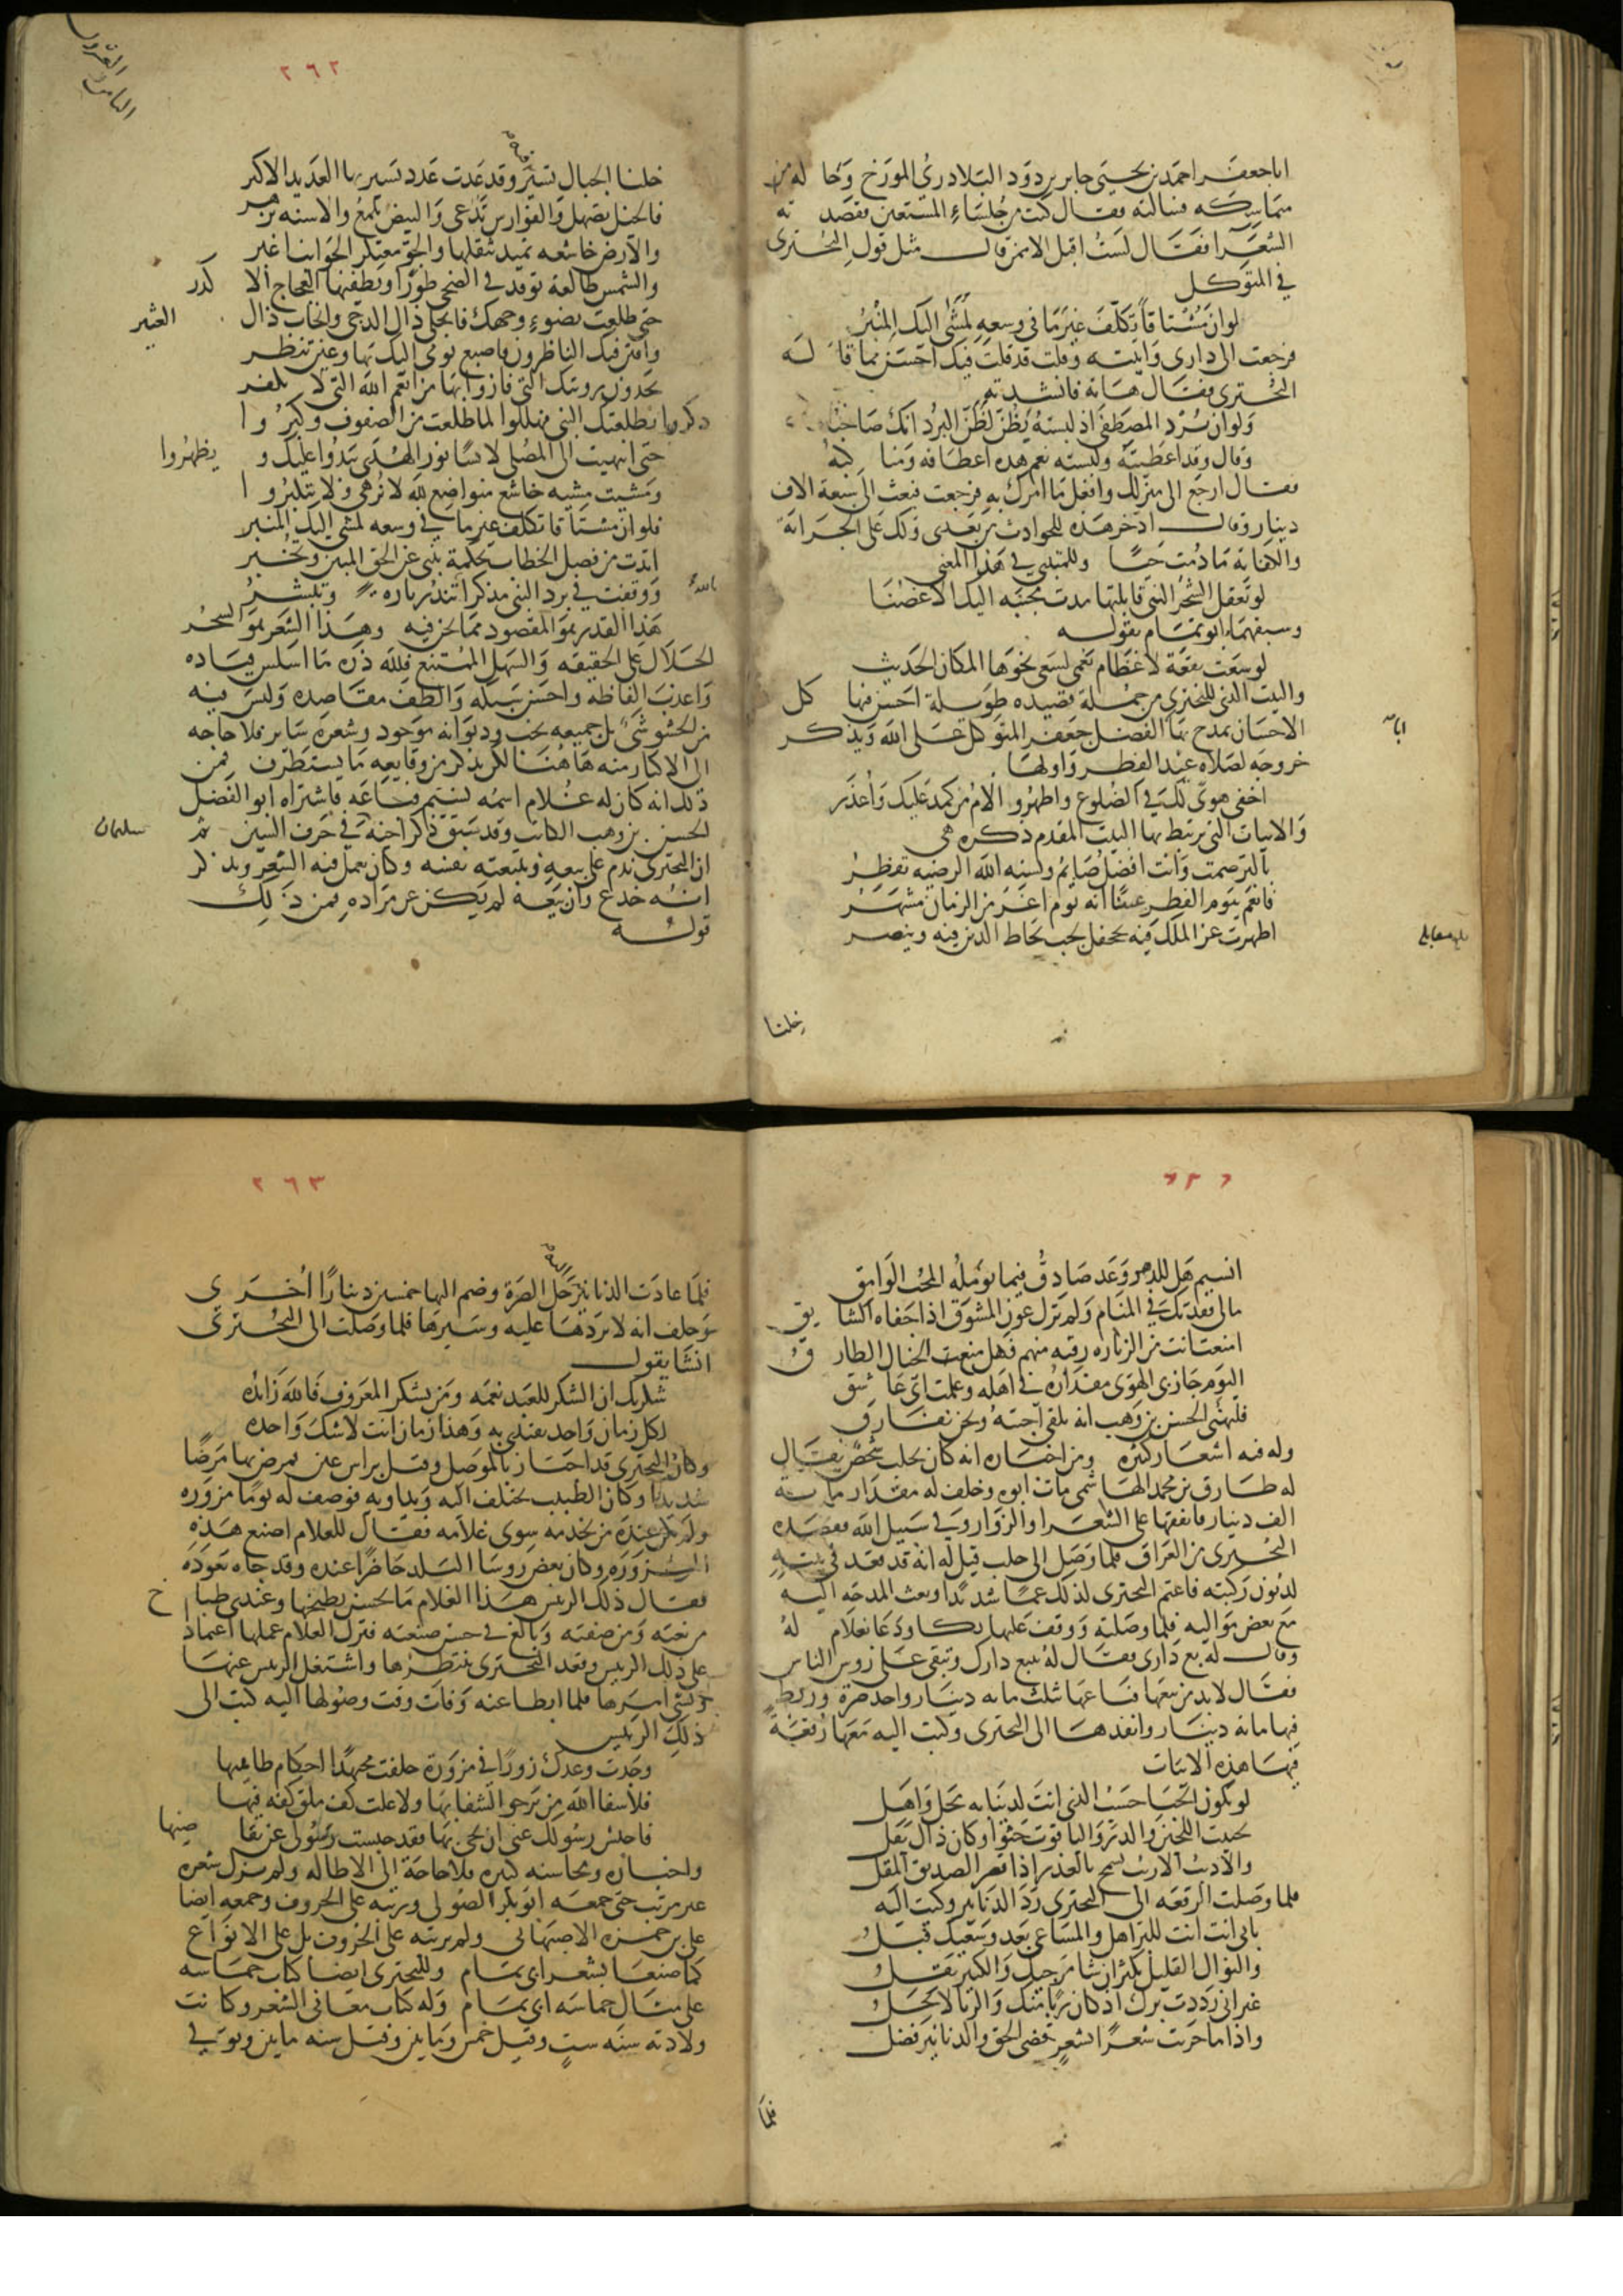 ابا جعفر احمد بن يحيى بن جابر بن داود البلاذري المورخ وحاله من
متماسكه فسالته فقال كنت من جلساء المستعين فقصده
الشعرا فقال لست اقبل الا ممن قال مثل قول البحتري
في المتوكل
لو ان مشتاقا تكلف غير ما في وسعه لمشى اليك المنبر
فرجعت الى داري واتيته وقلت قد قلت فيك احسن مما قاله
البحتري فقال هاته فانشدته
ولو ان برد المصطفى اذ لبسته يظن لظن البرد انك صاحبه
وقال وقد اعطيته ولبسته نعم هذه اعطافه ومناكبه
فقال ارجع الى منزلك وافعل ما امرك به فرجعت فبعث الي سبعة الاف
دينار وقال ادخر هذه للحوادث من بعدي ولك علي الجراية
والكفاية ما دمت حيا وللمتنبي في هذا المعنى
لو تعقل الشجر التي قابلتها مدت محييه اليك الاغصنا
وسبقهما ابو تمام بقوله
لو سعت بقعة لاعظام نعمى لسعى نحوها المكان الجديب
والبيت الذي للبحتري من جملة قصيده طويلة احسن فيها كل
الاحسان يمدح بها ابا الفضل جعفر المتوكل على الله ويذكر
خروجه لصلاه عيد الفطر واولها
اخفي هوى لك في الضلوع واظهر والام من كمد عليك واعذر
والابيات التي يرتبط بها البيت المقدم ذكره هي
بالبر صمت وانت افضل صايم وبسنه الله الرضيه تفطر
فانعم بيوم الفطر عيدا انه يوم اغر من الزمان مشهر
اظهرت عز الملك فيه بجحفل لجب يحاط الدين فيه وينصر
بلغ مقابله
خلنا
٢٦٢
خلنا الجبال تسير فيه وقد غدت عدد تسير بها العديد الاكبر
فالخيل تصهل والفوارس تدعي والبيض تلمع والاسنه تزهر
والارض خاشعه تميد بثقلها والجو معتكر الجوانب اغبر
والشمس طالعة توقد في الضحى طورا ويطفئها العجاج الاكدر
حتى طلعت بضوء وجهك فانجلى ذاك الدجى وانجاب ذاك العثير
وافتن فيك الناظرون فاصبع يومى اليك بها وعين تنظر
يجدون رويتك التي فازوا بها من انعم الله التي لا تكفر
ذكروا بطلعتك النبي فهللوا لما طلعت من الصفوف وكبروا
حتى انتهيت الى المصلى لابسا نور الهدى يبدو عليك ويظهر
ومشيت مشيه خاشع متواضع لله لا يزهى ولا يتكبر
فلو ان مشتاقا تكلف غير ما في وسعه لمشى اليك المنبر
ايدت من فصل الخطاب بحكمة تنبي عن الحق المبين وتخبر
ووقفت في برد النبي مذكرا بالله تنذر تاره وتبشر
هذا القدر هو المقصود مما نحن فيه وهذا الشعر هو السحر
الحلال على الحقيقه والسهل الممتنع فلله دره ما اسلس قياده
واعذب الفاظه واحسن سبكه والطف مقاصده وليس فيه
من الحشو شي بل جميعه نخب وديوانه موجود وشعره ساير فلا حاجه
الى الاكثار منه ها هنا لكن نذكر من وقايعه ما يستطرف فمن
ذلك انه كان له غلام اسمه نسيم فباعه فاشتراه ابو الفضل
الحسن بن وهب الكاتب وقد سبق ذكر اخيه سليمان في حرف السين ثم
ان البحتري ندم على بيعه وتتبعته نفسه وكان يعمل فيه الشعر ويذكر
انه خدع وان بيعه لم يكن عن مراده فمن ذلك
قوله
٢٦٣
انسيم هل للدهر وعد صادق فيما يومله المحب الوامق
مالي فقدتك في المنام ولم تزل عون المشوق اذا جفاه الشايق
امنعت انت من الزياره رقبه منهم فهل منع الخيال الطارق
اليوم جاز بي الهوى مقداره في اهله وعلمت اني عاشق
فليهنئ الحسن بن وهب انه يلقى احبته ونحن نفارق
وله فيه اشعار كثيره ومن اخباره انه كان بحلب شخص يقال
له طاهر بن محمد الهاشمي مات ابوه وخلف له مقدار مايه
الف دينار فانفقها على الشعرا والزوار وفي سبيل الله فقصده
البحتري من العراق فلما وصل الى حلب قيل له انه قد قعد في بيته
لديون ركبته فاغتم البحتري لذلك غما شديدا وبعث المدحه اليه
مع بعض مواليه فلما وصلته ووقف عليها بكا ودعا بغلام له
وقال له بع داري فقال له تبيع دارك وتبقى على روس الناس
فقال لا بد من بيعها فباعها بثلث مايه دينار واخذ صرة وربط
فيها مايه دينار وانفذها الى البحتري وكتب اليه معها رقعة
فيها هذه الابيات
لو يكون الحبا حسب الذي انت لدينا به محل واهل
لحبيت اللجين والدر واليا قوت حثوا وكان ذاك يقل
والاديب الاريب يسمح بالعذر اذا قصر الصديق المقل
فلما وصلت الرقعه الى البحتري رد الدنانير وكتب اليه
بابي انت انت للبر اهل والمساعي بعد وسعيك قبل
والنوال القليل يكثر ان شا مرجيك والكثير يقل
غير اني رددت برك اذ كان ربا منك والربا لا يحل
واذا ما جزيت شعرا بشعر قضي الحق والدنانير فضل
فلما
٢٦٣
فلما عادت الدنانير اليه حل الصرة وضم اليها خمسين دينارا اخرى
وحلف انه لا يردها عليه وسيرها فلما وصلت الى البحتري
انشا يقول
شكرتك ان الشكر للعبد نعمه ومن يشكر المعروف فالله زائده
لكل زمان واحد يقتدى به وهذا زمان انت لا شك واحده
وكان البحتري قد اجتاز بالموصل وقيل براس عين فمرض بها مرضا
شديدا وكان الطبيب يختلف اليه ويداويه فوصف له يوما مزوره
ولم يكن عنده من يخدمه سوى غلامه فقال للغلام اصنع هذه
المزوره وكان بعض روسا البلد حاضرا عنده وقد جاه يعوده
فقال ذلك الريس هذا الغلام ما يحسن يطبخها وعندي طباخ
من نعته ومن صفته وبالغ في حسن صنعته فترك الغلام عملها اعتمادا
على ذلك الريس وقعد البحتري ينتظرها واشتغل الريس عنها
ونسي امرها فلما ابطا عنه وفات وقت وصولها اليه كتب الى
ذلك الريس
وجدت وعدك زورا في مزورة حلفت مجتهدا احكام طاهيها
فلا شفا الله من يرجو الشفا بها ولا علت كف ملق كفه فيها
فاحبس رسولك عني ان يجي بها فقد حبست رسولي عن تقاضيها
واخباره ومحاسنه كثيره فلا حاجة الى الاطاله ولم يزل شعره
غير مرتب حتى جمعه ابو بكر الصولي ورتبه على الحروف وجمعه ايضا
علي بن حمزه الاصبهاني ولم يرتبه على الحروف بل على الانواع
كما صنع بشعر ابي تمام وللبحتري ايضا كتاب حماسه
على مثال حماسه ابي تمام وله كتاب معاني الشعر وكانت
ولادته سنه ست وقيل خمس ومايتين وقيل سنه مايتين وتوفي